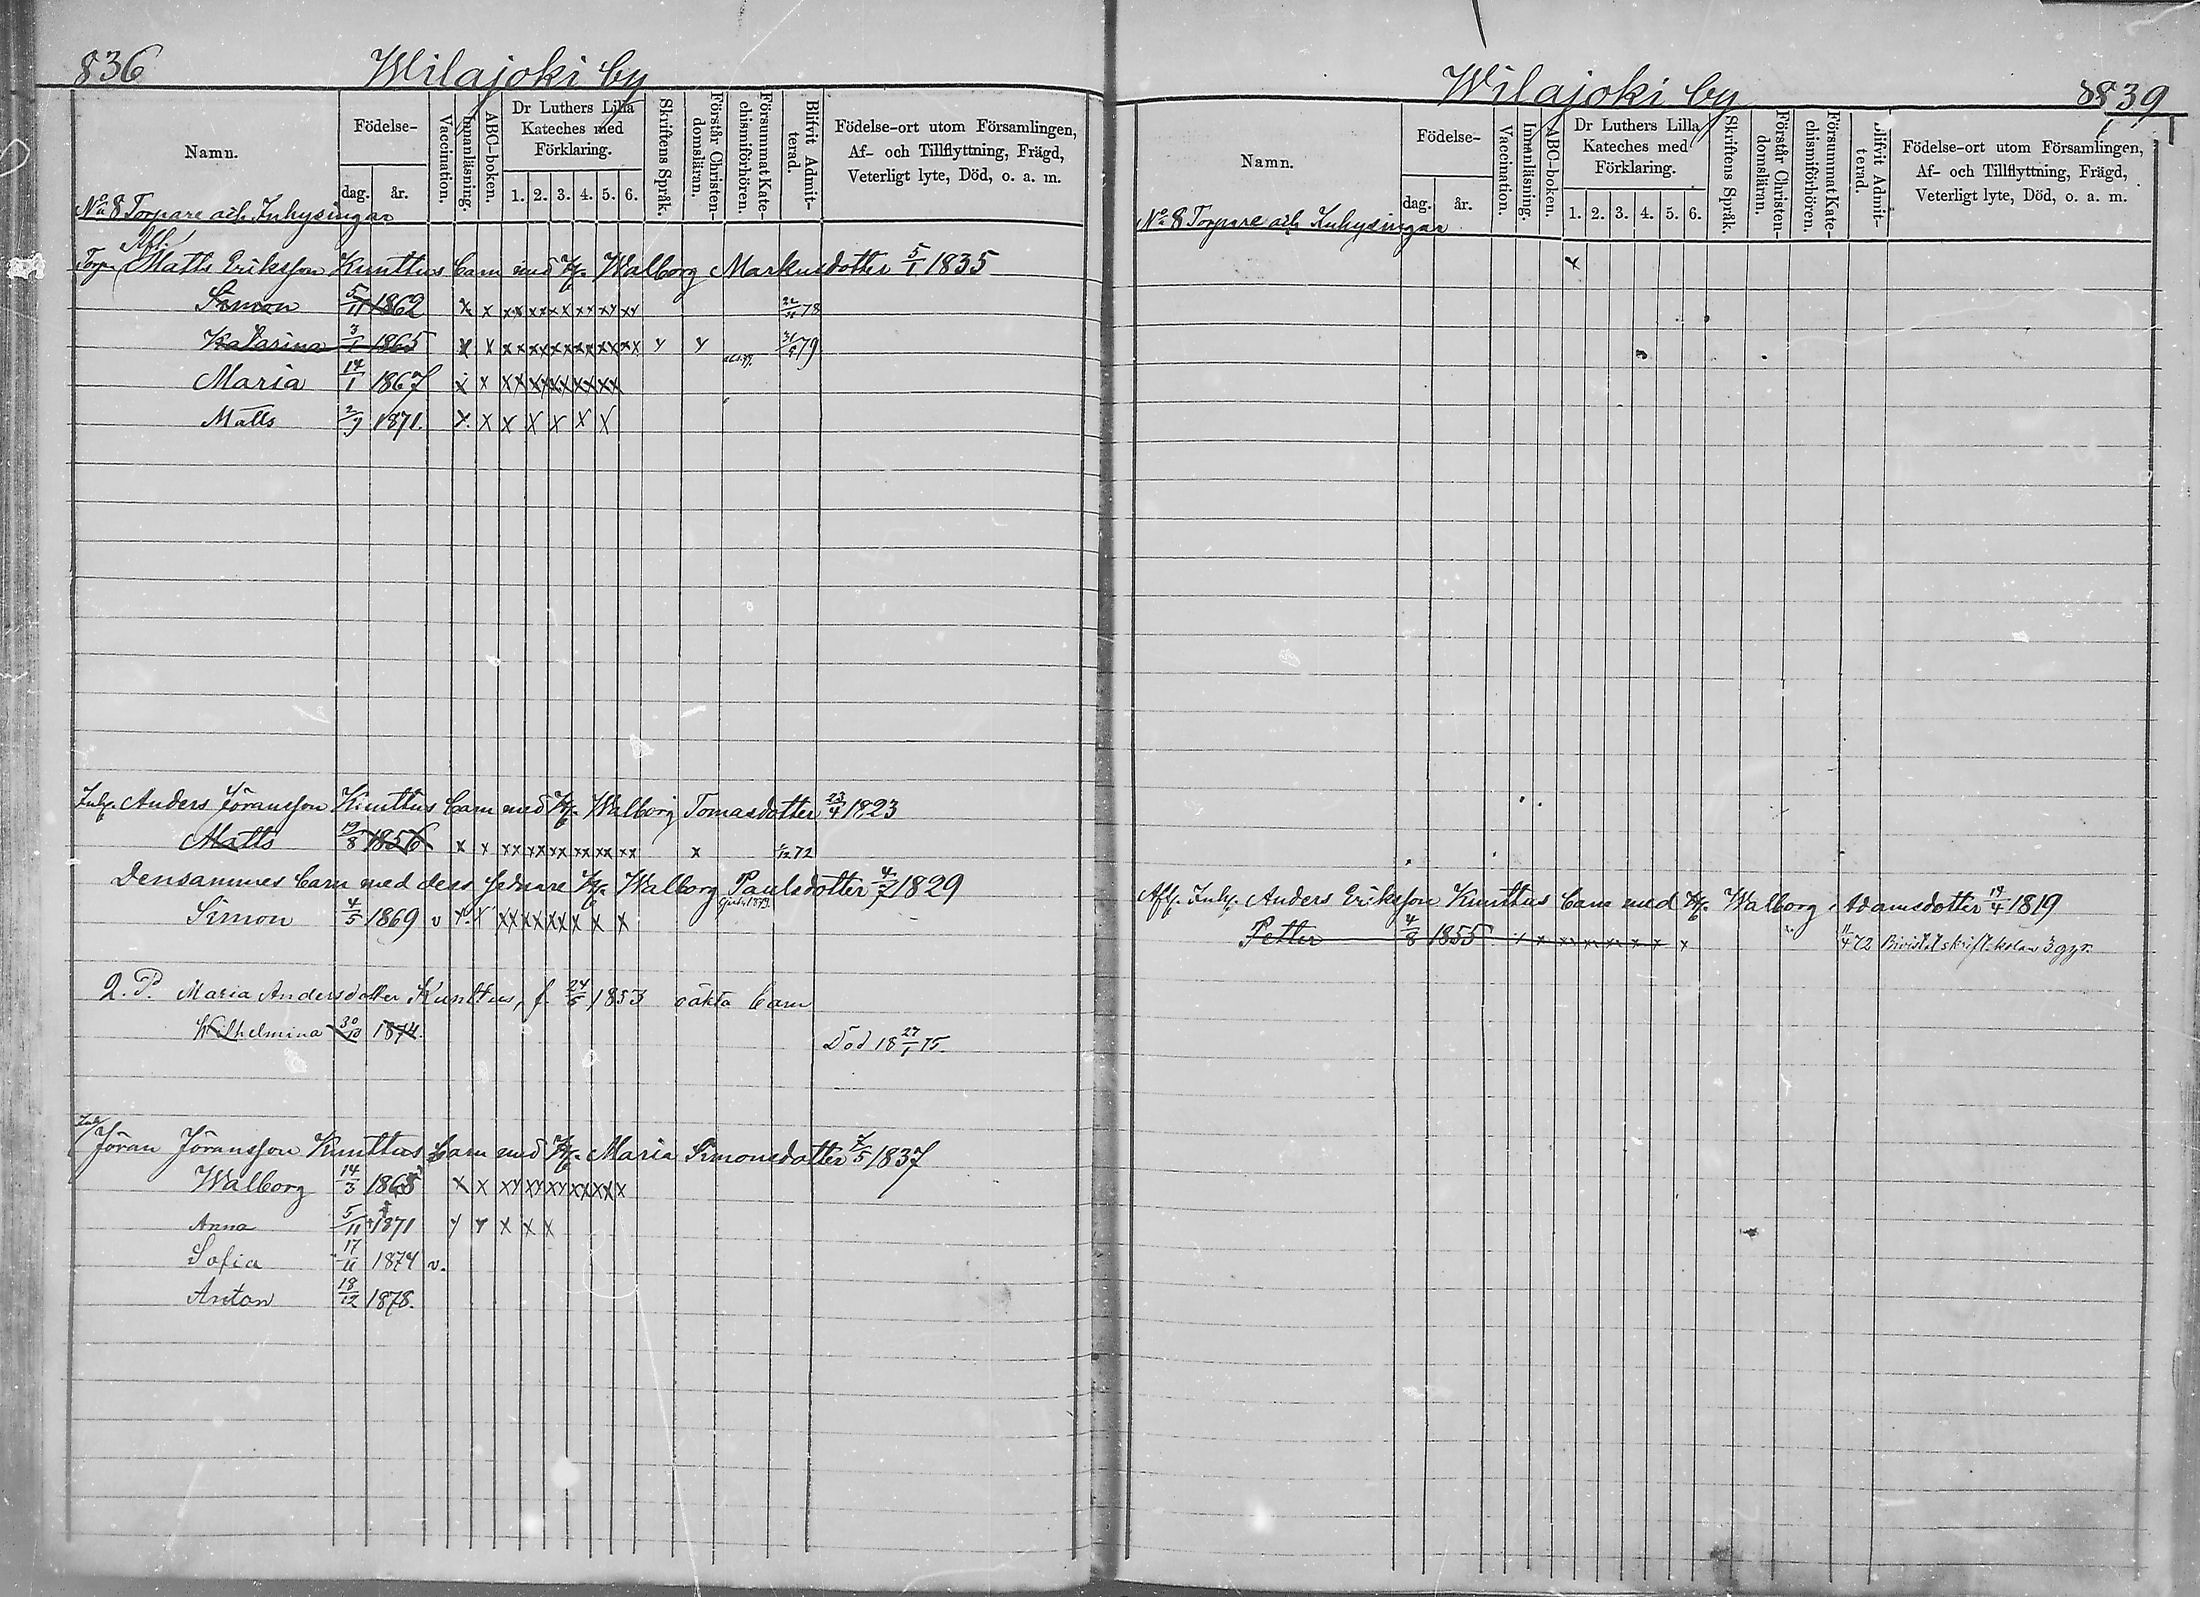 836
Wilajoki by
Namn.
Födelse-
dag. år.
Vaccination.
Innanläsning.
ABC-boken.
Dr Luthers Lilla Kateches med Förklaring.
1. 2. 3. 4. 5. 6.
Skriftens Språk.
Förstår Christendomsläran.
Försummat Katechismiförhören.
Blifvit Admitterad.
Födelse-ort utom Församlingen, Af- och Tillflyttning, Frägd, Veterligt lyte, Död, o. a. m.
No 8 Torpare och Inhysingar
Afl.
Torp. Matts Eriksson Kunttus barn med H. Walborg Markusdotter 5/1 1835
Simon 5/11 1862 x x xx xx xx xx xx xx 78
Katarina 3/1 1865 x x xx xx xx xx xx xx x x 79
Maria 14/1 1867 x x xx xx xx xx xx
Matts 2/9 1871. x x x x x x x
Inh. Anders Jöransson Kunttus barn med H. Walborg Tomasdotter 23/4 1823
Matts 19/8 1856 x x xx xx xx xx xx xx x 72
Densammes barn med dess sednare H. Walborg Paulsdotter 4/7 1829
Simon 4/5 1869 v x x xx xx xx x x x
Q. P. Maria Andersdotter Kunttus, f. 24/5 1853 oäkta barn
Wilhelmina 30/10 1874. Död 18 27/1 75.
Inh. Jöran Jöransson Kunttus barn med H. Maria Simonsdotter 7/5 1837
Walborg 14/3 1868 x x xx xx xx xx xx x
Anna 5/11 1871 x x x x x
Sofia 17/11 1874 v.
Anton 18/12 1878.
Wilajoki by
839
Namn.
Födelse-
dag. år.
Vaccination.
Innanläsning.
ABC-boken.
Dr Luthers Lilla Kateches med Förklaring.
1. 2. 3. 4. 5. 6.
Skriftens Språk.
Förstår Christendomsläran.
Försummat Katechismiförhören.
Blifvit Admitterad.
Födelse-ort utom Församlingen, Af- och Tillflyttning, Frägd, Veterligt lyte, Död, o. a. m.
No 8 Torpare och Inhysingar
Afl. Inh. Anders Eriksson Kunttus barn med H. Walborg Adamsdotter 19/4 1819
Petter 4/8 1855 72 skriftskolan 3 ggr.